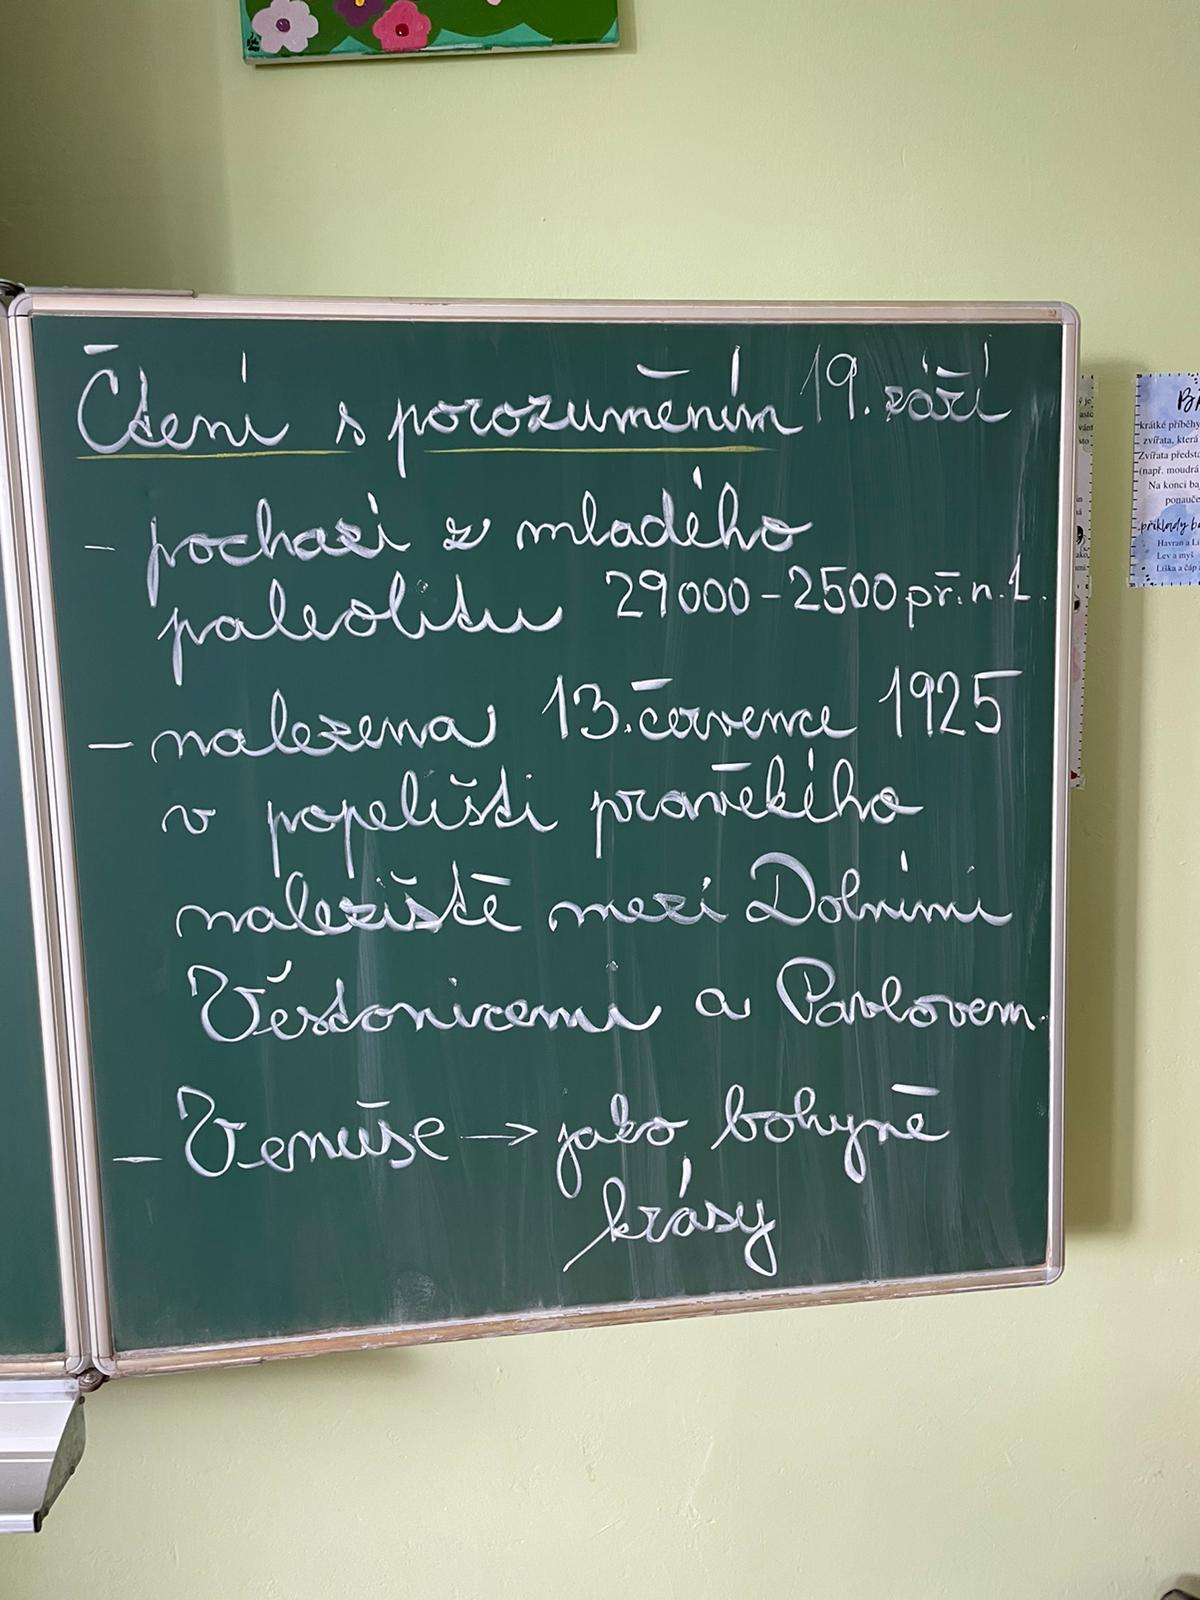 Čtení s porozuměním 19. září
- pochází z mladého
paleolitu 29000-2500 př. n. l.
- nalezena 13. července 1925
v popelišti pravěkého
naleziště mezi Dolními
Věstonicemi a Pavlovem.
- Venuše → jako bohyně
krásy
krátké příběhy
zvířata, která
Zvířata předsta
(např. moudrá
Na konci ba
ponauče
příklady b
Havran a Li
Lev a myš
Liška a čáp